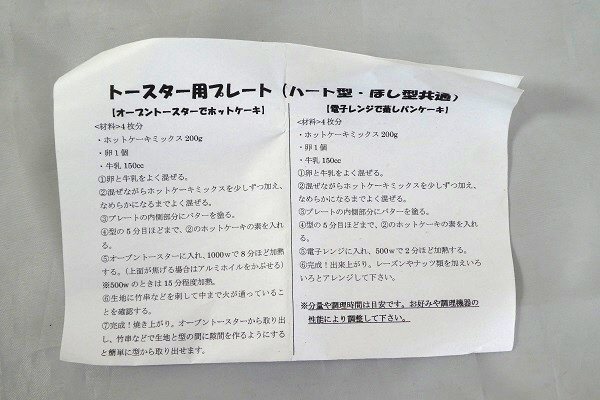 トースター用プレート（ハート型・ほし型共通）
【オーブントースターでホットケーキ】
<材料>4枚分
・ホットケーキミックス200g
・卵1個
・牛乳150cc
①卵と牛乳をよく混ぜる。
②混ぜながらホットケーキミックスを少しずつ加え、
なめらかになるまでよく混ぜる。
③プレートの内側部分にバターを塗る。
④型の5分目ほどまで、②のホットケーキの素を入れる。
⑤オーブントースターに入れ、1000wで8分ほど加熱
する。（上面が焦げる場合はアルミホイルをかぶせる）
※500wのときは15分程度加熱。
⑥生地に竹串などを刺して中まで火が通っていること
を確認する。
⑦完成！焼き上がり。オーブントースターから取り出
し、竹串などで生地と型の間に隙間を作るようにする
と簡単に型から取り出せます。
【電子レンジで蒸しパンケーキ】
<材料>4枚分
・ホットケーキミックス200g
・卵1個
・牛乳150cc
①卵と牛乳をよく混ぜる。
②混ぜながらホットケーキミックスを少しずつ加え、
なめらかになるまでよく混ぜる。
③プレートの内側部分にバターを塗る。
④型の5分目ほどまで、②のホットケーキの素を入れ
る。
⑤電子レンジに入れ、500wで2分ほど加熱する。
⑥完成！出来上がり、レーズンやナッツ類を加えいろ
いろとアレンジして下さい。
※分量や調理時間は目安です。お好みや調理機器の
性能により調整して下さい。